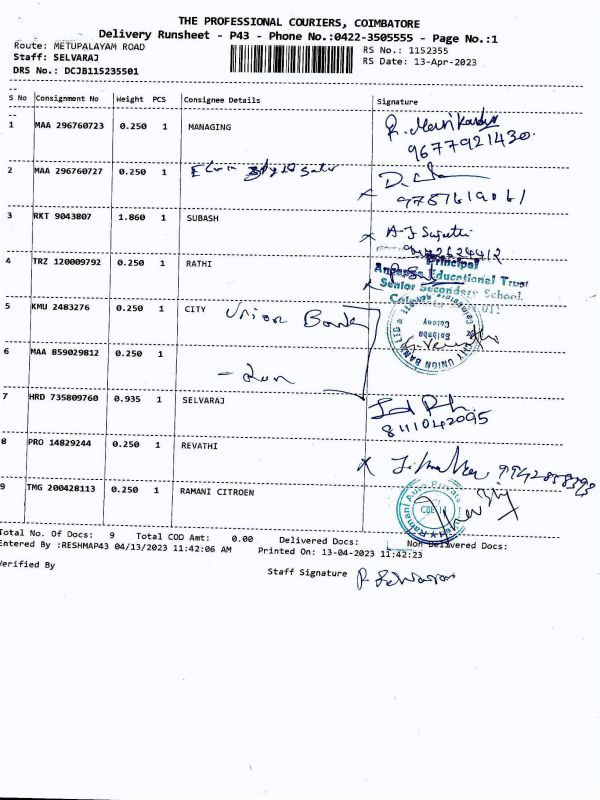 THE PROFESSIONAL COURIERS, COIMBATORE
Delivery Runsheet - P43 - Phone No.:0422-3505555 - Page No.:1
Route: METUPALAYAM ROAD RS No.: 1152355
Staff: SELVARAJ RS Date: 13-Apr-2023
DRS No.: DCJB115235501
S No Consignment No Weight PCS Consignee Details Signature
1 MAA 296760723 0.250 1 MANAGING R. Manikandan
9677921430.
2 MAA 296760727 0.250 1 D.
9787619061
3 RKT 9043807 1.860 1 SUBASH A.J
4 TRZ 120009792 0.250 1 RATHI Principal
Educational Trust
Senior Secondary School.
5 KMU 2483276 0.250 1 CITY Union Bank
CITY UNION BANK LTD
Colony
6 MAA 859029812 0.250 1
7 HRD 735809760 0.935 1 SELVARAJ
8411042095
8 PRO 14829244 0.250 1 REVATHI
9 TMG 200428113 0.250 1 RAMANI CITROEN
Total No. Of Docs: 9 Total COD Amt: 0.00 Delivered Docs: Non Delivered Docs:
Entered By :RESHMAP43 04/13/2023 11:42:06 AM Printed On: 13-04-2023 11:42:23
Verified By Staff Signature P. Selvaraj